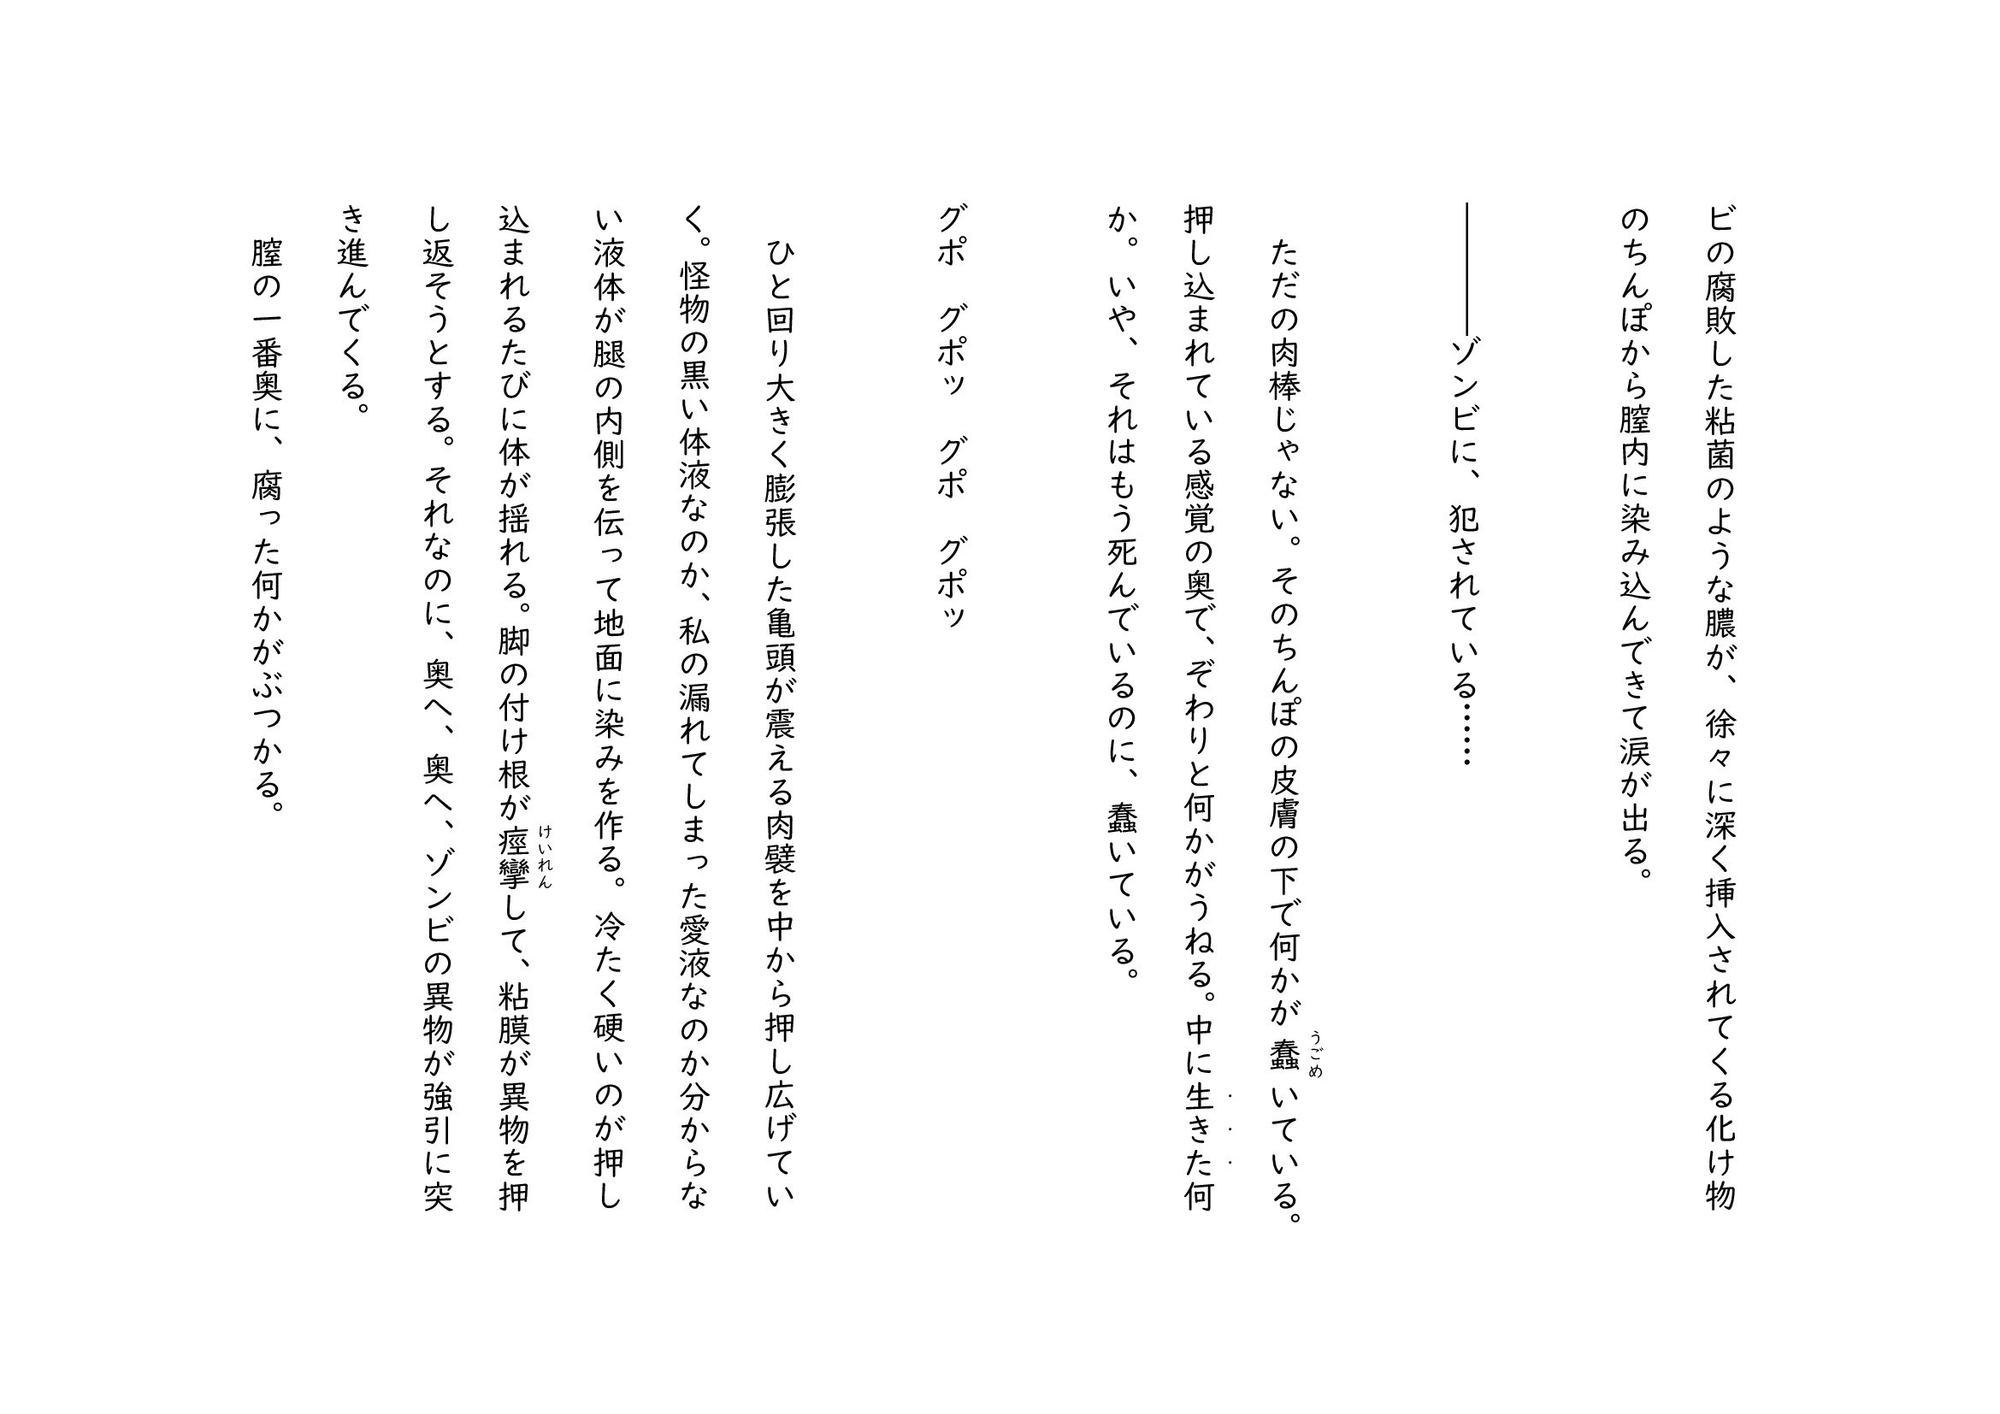 ビの腐敗した粘菌のような膿が、徐々に深く挿入されてくる化け物
のちんぽから膣内に染み込んできて涙が出る。
――――ゾンビに、犯されている……
ただの肉棒じゃない。そのちんぽの皮膚の下で何かが蠢いている。
うごめ
押し込まれている感覚の奥で、ぞわりと何かがうねる。中に生きた何
か。いや、それはもう死んでいるのに、蠢いている。
グポ　グポッ　グポ　グポッ
ひと回り大きく膨張した亀頭が震える肉襞を中から押し広げてい
く。怪物の黒い体液なのか、私の漏れてしまった愛液なのか分からな
い液体が腿の内側を伝って地面に染みを作る。冷たく硬いのが押し
込まれるたびに体が揺れる。脚の付け根が痙攣して、粘膜が異物を押
けいれん
し返そうとする。それなのに、奥へ、奥へ、ゾンビの異物が強引に突
き進んでくる。
膣の一番奥に、腐った何かがぶつかる。